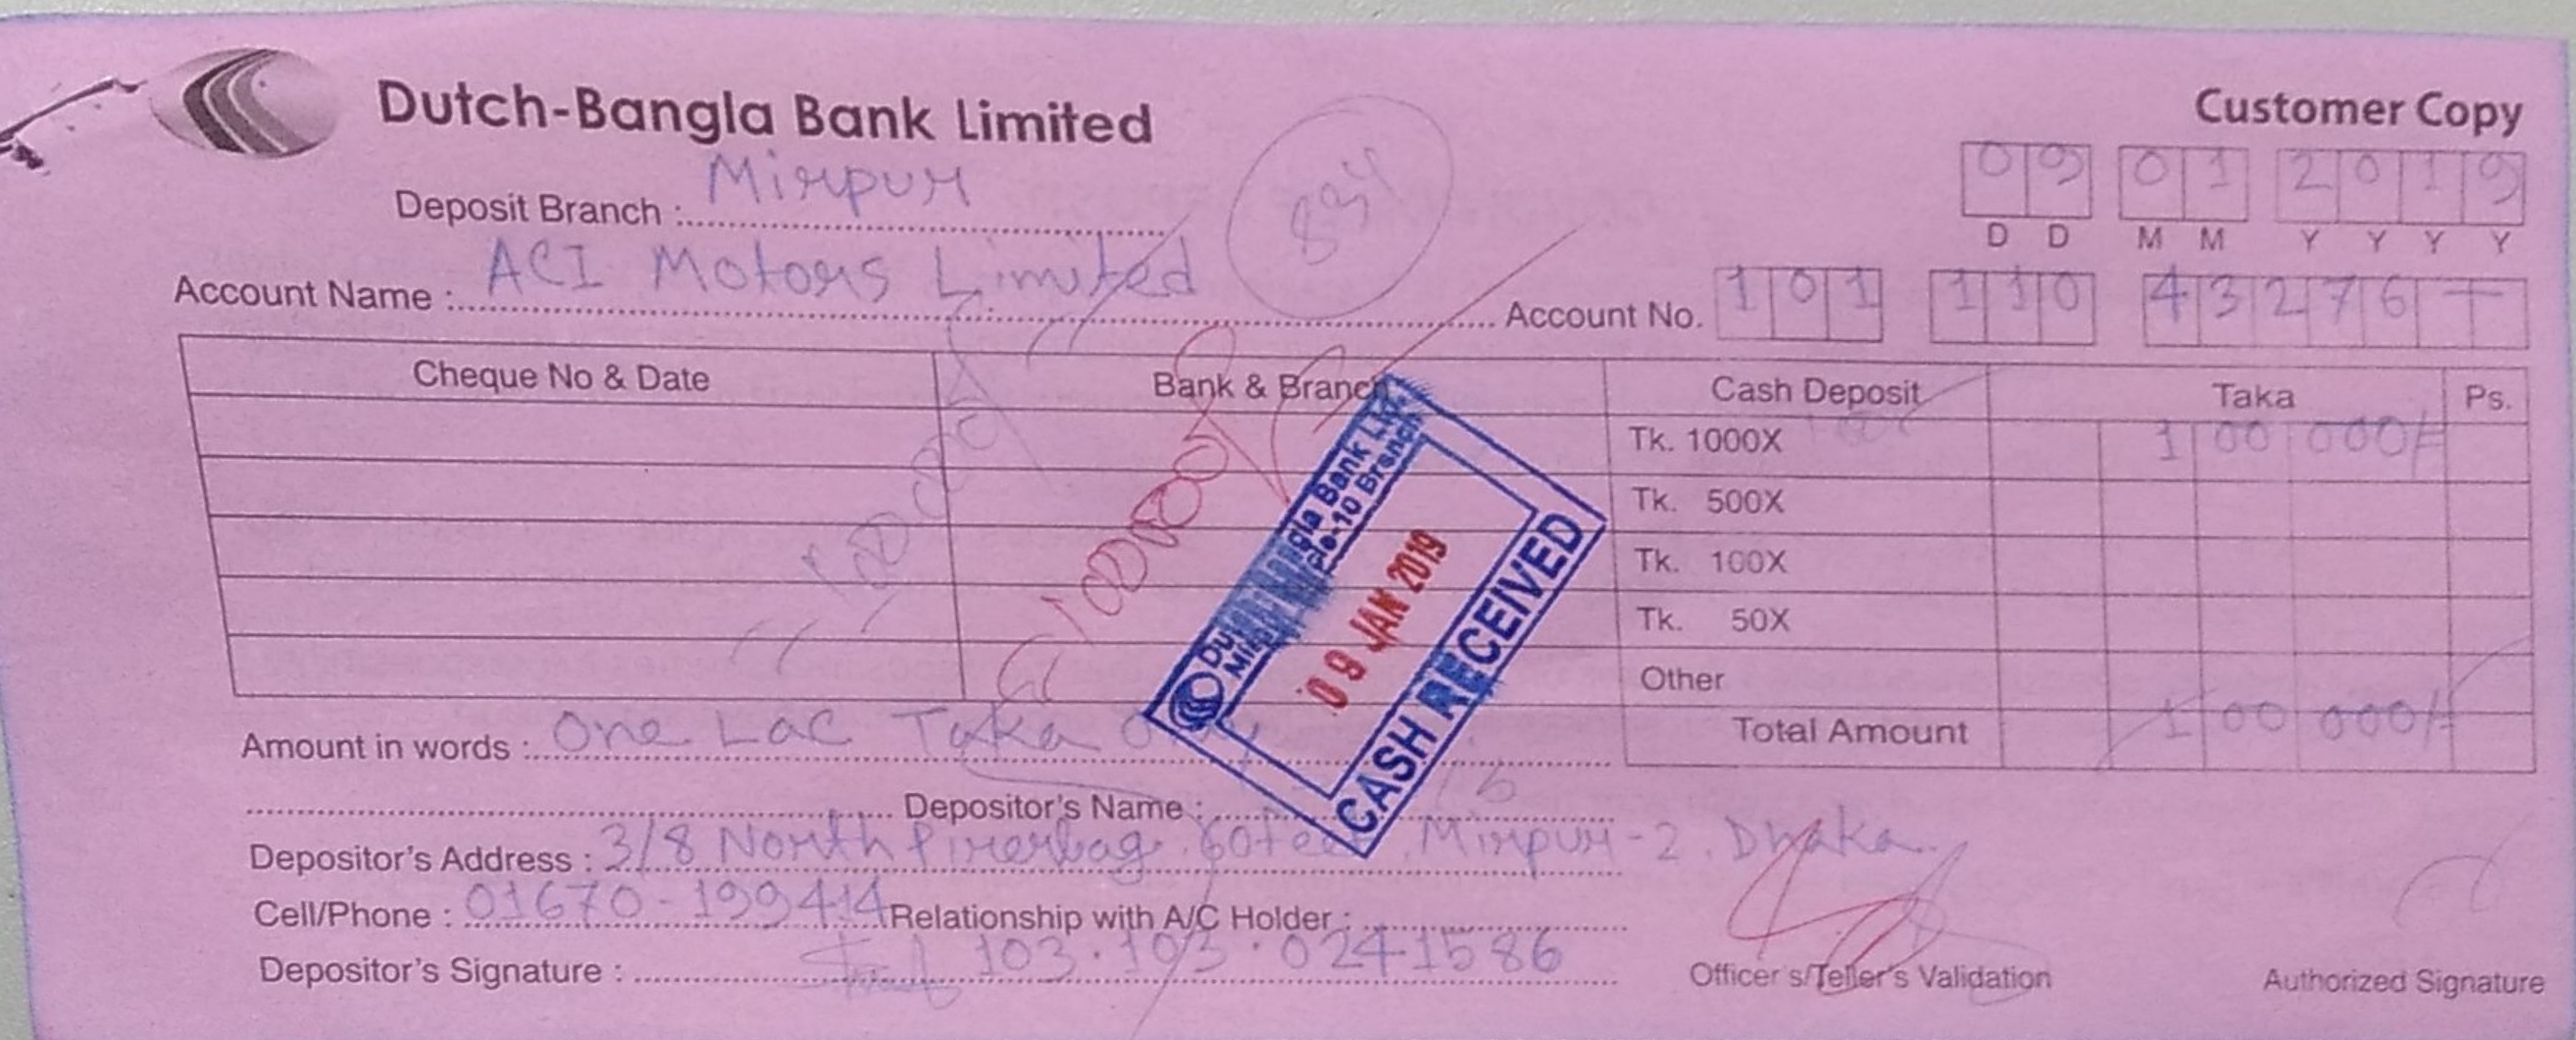 Dutch-Bangla Bank Limited
Customer Copy
09 01 2019
D D M M Y Y Y Y
Deposit Branch : Mirpur
Account Name : ACI Motors Limited
Account No. 101 110 43276
Cheque No & Date Bank & Branch Cash Deposit Taka Ps.
Tk. 1000X 1 00 000/=
Tk. 500X
Tk. 100X
Tk. 50X
Other
Total Amount 1 00 000/=
Bank Ltd.
-10 Branch
09 JAN 2019
CASH RECEIVED
Amount in words : One Lac Taka
Depositor's Name :
Depositor's Address : 3/8 North Pirerbag. 60 feet, Mirpur-2. Dhaka.
Cell/Phone : 01670-199414 Relationship with A/C Holder :
Depositor's Signature : 103.103.0241586
Officer's/Teller's Validation
Authorized Signature